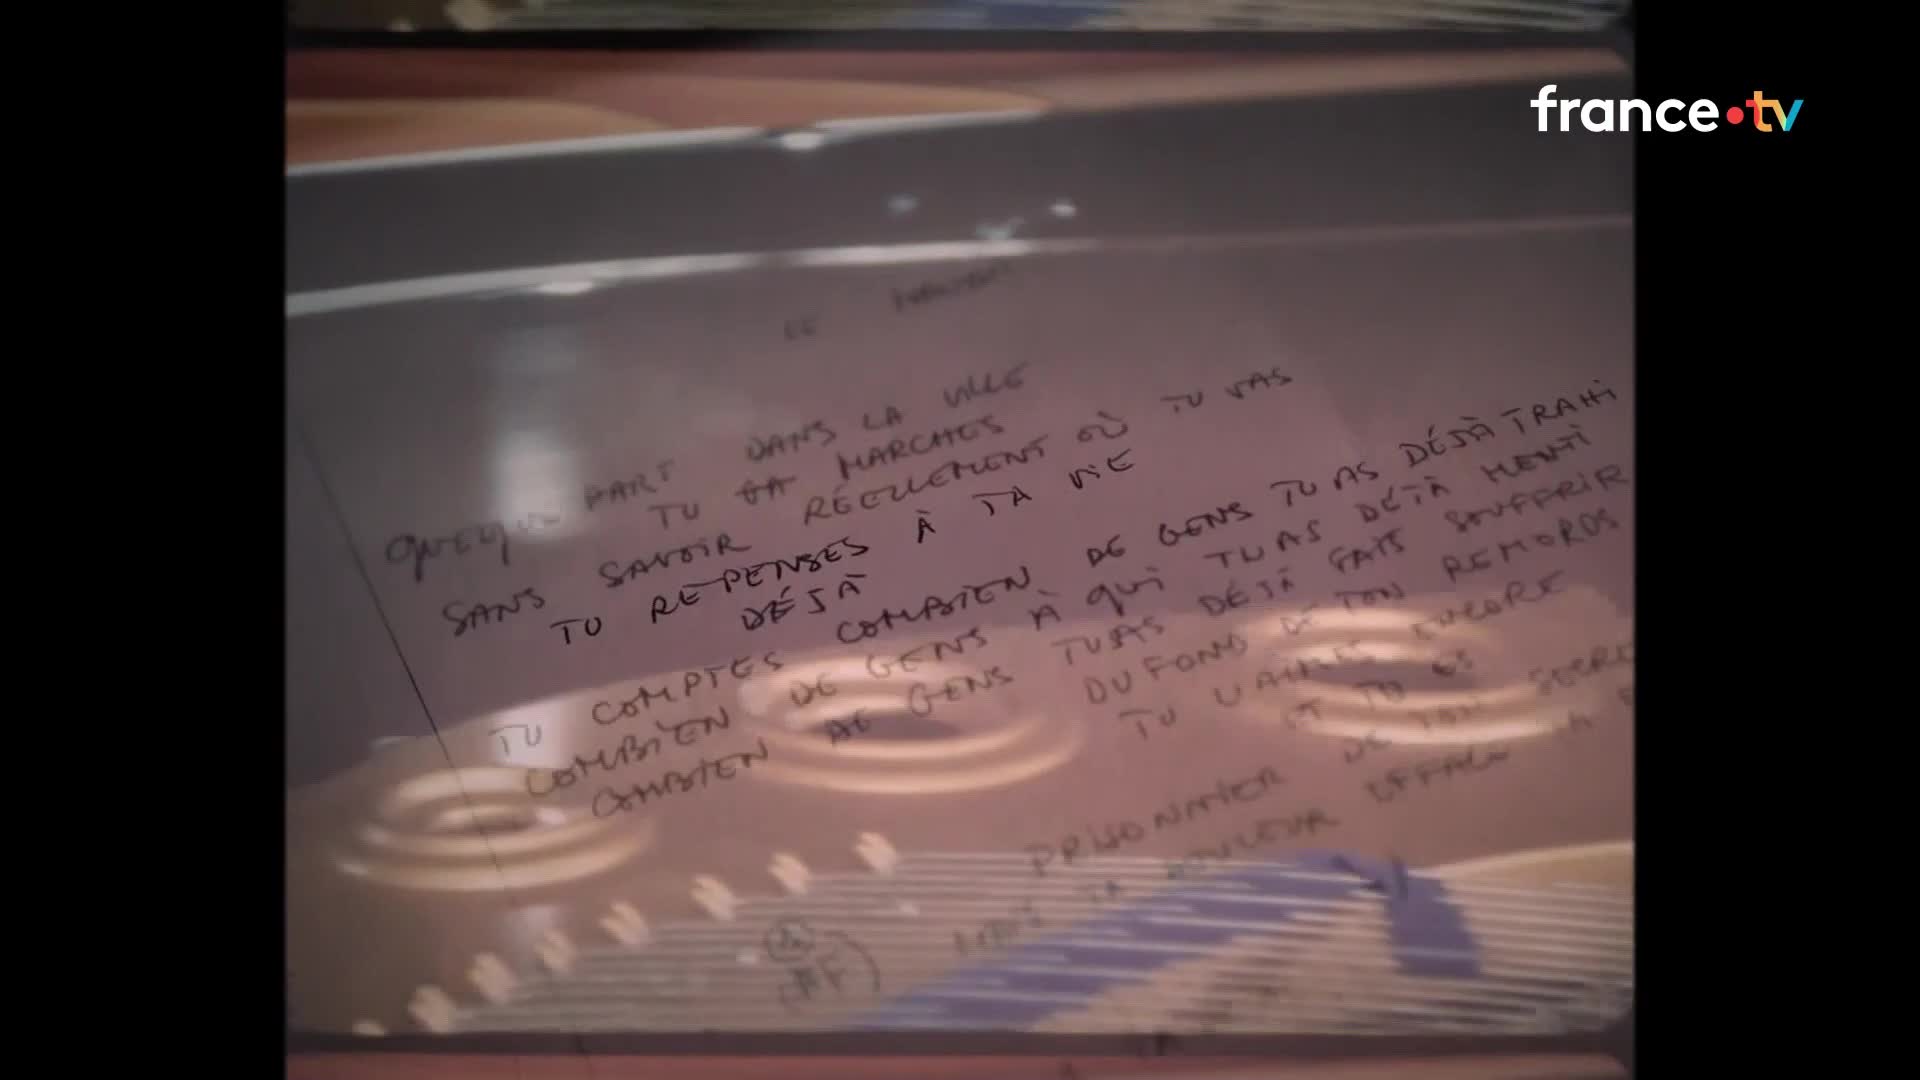 france.tv
LE
QUELQUE PART DANS LA VILLE
TU MARCHES
SANS SAVOIR RÉELLEMENT OÙ TU VAS
TU REPENSES À TA VIE
DÉJÀ
TU COMPTES COMBIEN DE GENS TU AS DÉJÀ TRAHI
COMBIEN DE GENS À QUI TU AS DÉJÀ MENTI
COMBIEN DE GENS TU AS DÉJÀ FAIS SOUFFRIR
DU FOND DE TON REMORDS
TU L'AIMES ENCORE
ET TU ES
PRISONNIER DE TON
MAIS TA DOULEUR EFFACE